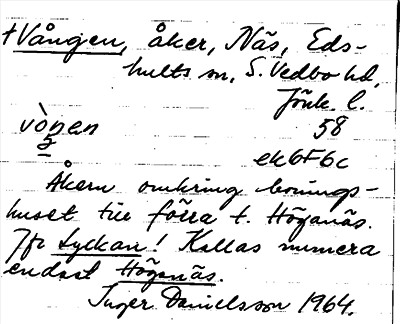 +Vången, åker, Näs, Eds-
hults sn, S. Vedbo hd,
Jönk. l.
vònen 58
2
ek6F6c
Åkern omkring bonings-
huset till förra t. Höganäs.
Jfr Lyckan! Kallas numera
endast Höganäs.
Inger Danielsson 1964.